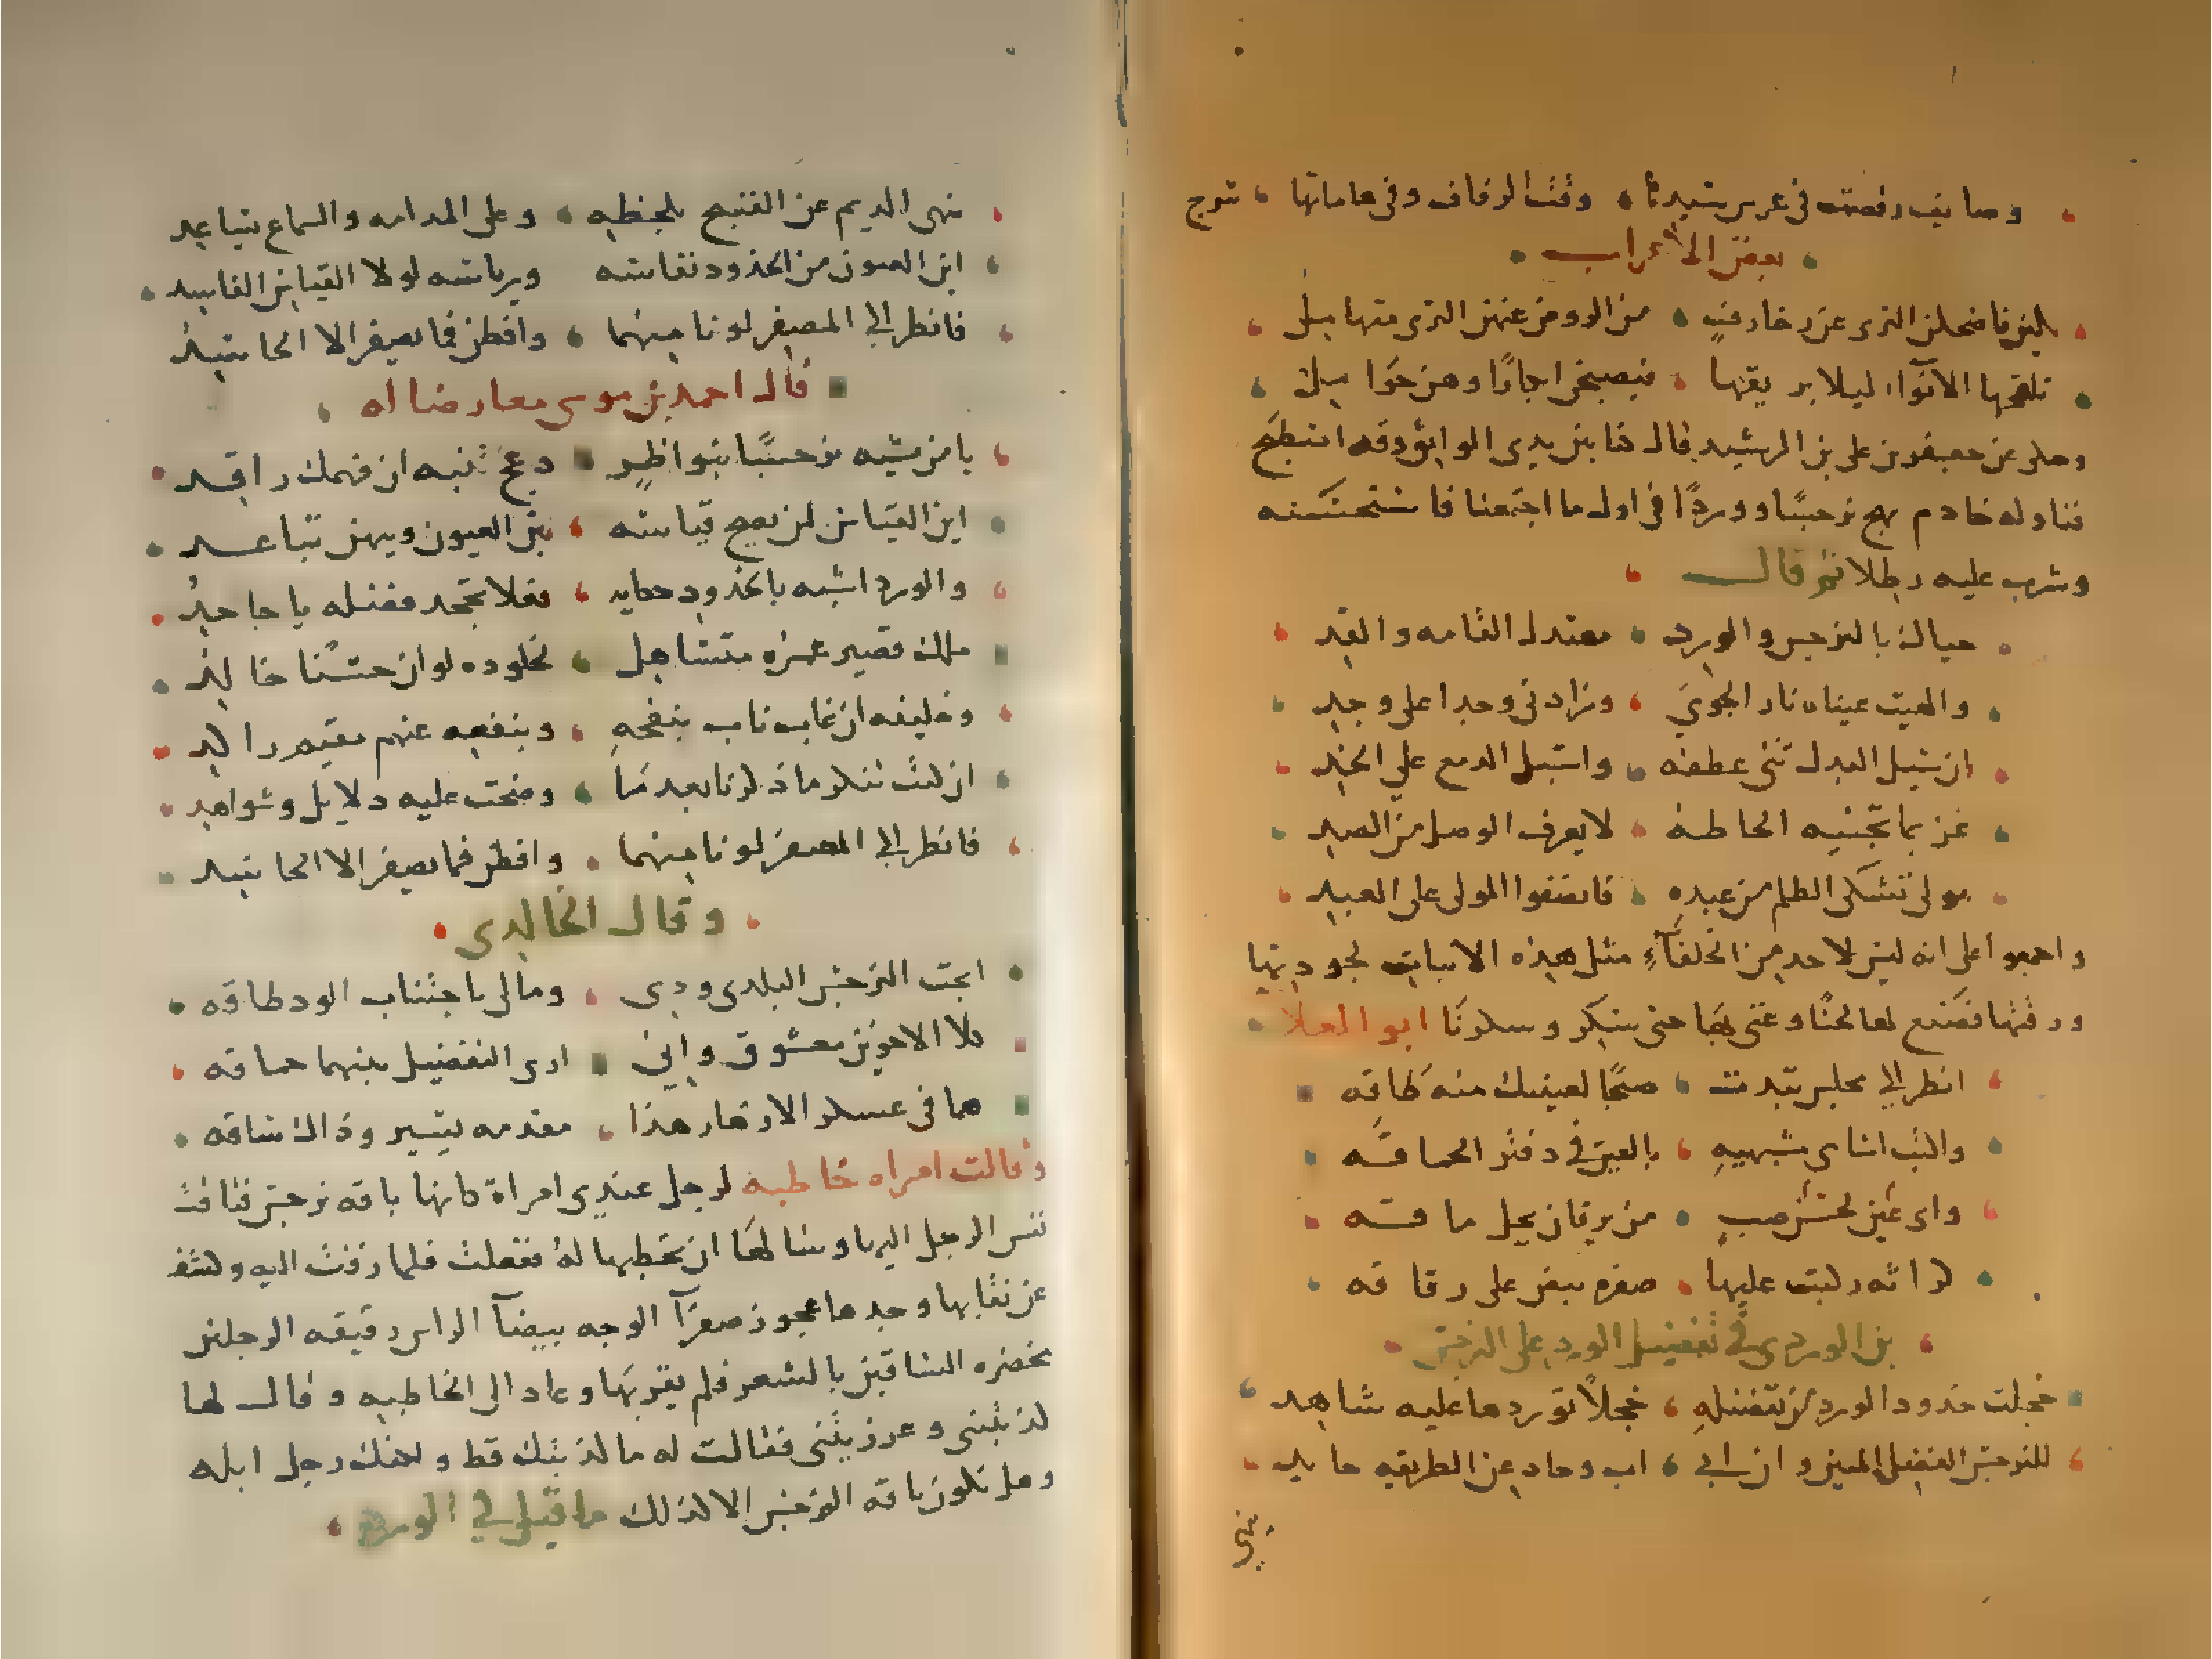 وصايف رقصت في عرس سيدنا وقت الزفاف وفي هاماتها سرج
بعض الاعراب
من الروض عنهن الثرى متهايل
تلقحها الانواء ليلا بريقها فيصبحن اجارا وهن حوايل
وحكى عن جعفر بن على بن الرشيد قال كنا بين يدى الواثق وقد اصطبح
فناوله خادم نرجسا ووردا في اول ما اجتمعنا فاستحسنه
وشرب عليه رطلا ثم قال
حياك بالنرجس والورد معتدل القامه والقد
والهبت عيناه نار الجوى وزاد في وجدا على وجد
ان سيل البدل ثنى عطفه واسبل الدمع على الخد
غر بما تجنيه الحاظه لا يعرف الوصل من الصد
مولى تشكى الظلم من عبده فانصفوا المولى على العبد
واجمعوا على انه ليس لاحد من الخلفاء مثل هذه الابيات لجودتها
ورقتها فصنع لها لحنا وغنى بها حتى سكر وسكرنا ابو العلا
انظر الى مجلس تبدت صبحا لعينيك منه طاقه
واكتب اسامى مشبهيه بالعين في دفتر الحماقه
واى عين لحسن صب من يرقان يحل ماقه
كراثه ركبت عليها صفره بيض على رقاقه
بن الرومى في تفضيل الورد على النرجس
خجلت خدود الورد من تفضيله خجلا توردها عليه شاهد
للنرجس الفضل المبين وان ابى اب وحاد عن الطريقه حايد
ينهى
ينهى النديم عن القبيح بلحظه وعلى المدامه والسماع يساعد
اين العيون من الخدود نفاسه ورياسه لولا القياس الفاسد
فانظر الى المصفر لونا منهما وافطن فما يصفر الا الحاسد
قال احمد بن موسى معارضا له
يا من يشبه نرجسا بنواظر دعج تنبه ان فهمك راقد
اين القياس لمن يصح قياسه بين العيون وبينهن تباعد
والورد اشبه بالخدود حكايه فعلام تجحد فضله يا جاحد
ملك قصير عمره مستاهل لخلوده لو ان حسنا خالد
وخليفه ان غاب ناب بنفحه وبنفعه عنهم مقيم راكد
ان كنت تنكر ما ذكرنا بعد ما وضحت عليه دلايل وشواهد
فانظر الى المصفر لونا منهما وافطن فما يصفر الا الحاسد
وقال الخالدى
ابحت النرجس البلدى ودى ومالى باجتناب الود طاقه
كلا الاخوين معشوق واني ارى التفضيل بينهما حماقه
هما في عسكر الازهار هذا مقدمه يسير وذاك ساقه
وقالت امراه خاطبه لرجل عندى امراة كانها باقه نرجس فتاقت
نفس الرجل اليها وسالها ان تخطبها له ففعلت فلما زفت اليه وكشف
عن نقابها وجدها عجوز صفرآ الوجه بيضآ الراس دقيقه الرجلين
مخضره الساقين بالشعر فلم يقربها وعاد الى الخاطبه وقال لها
كذبتينى وغررتينى فقالت له ما كذبتك قط ولكنك رجل ابله
وهل تكون باقه النرجس الا كذلك ما قيل في الورد